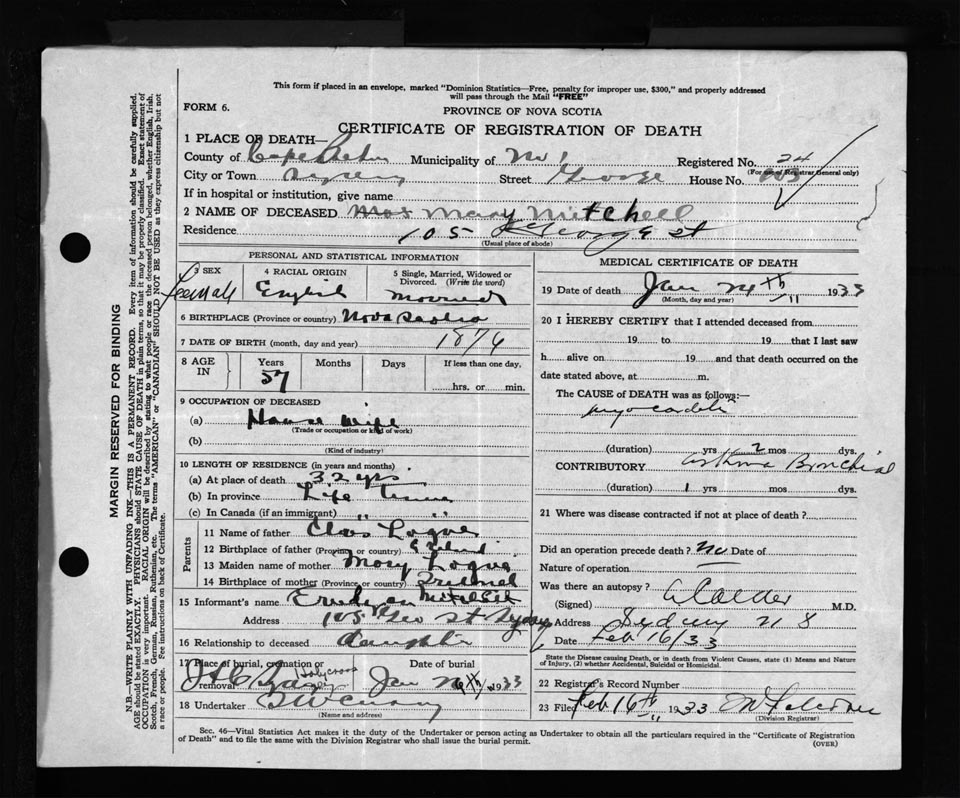 This form if placed in an envelope, marked "Dominion Statistics—Free, penalty for improper use, $300," and properly addressed
will pass through the Mail "FREE"
FORM 6.
PROVINCE OF NOVA SCOTIA
CERTIFICATE OF REGISTRATION OF DEATH
1 PLACE OF DEATH—
County of Cape Breton Municipality of No 1 Registered No. 24
(For use of Registrar General only)
City or Town Sydney Street George House No. 105
If in hospital or institution, give name
2 NAME OF DECEASED Mrs Mary Mitchell
Residence 105 George St
(Usual place of abode)
PERSONAL AND STATISTICAL INFORMATION
3 SEX 4 RACIAL ORIGIN 5 Single, Married, Widowed or
Divorced. (Write the word)
Female English Married
6 BIRTHPLACE (Province or country) Nova Scotia
7 DATE OF BIRTH (month, day and year) 1876
8 AGE IN Years Months Days If less than one day,
57 hrs. or min.
9 OCCUPATION OF DECEASED
(a) House wife
(Trade or occupation or kind of work)
(b)
(Kind of industry)
10 LENGTH OF RESIDENCE (in years and months)
(a) At place of death 32 yrs
(b) In province Life Time
(c) In Canada (if an immigrant) " "
Parents
11 Name of father Logue
12 Birthplace of father (Province or country)
13 Maiden name of mother Mary Logue
14 Birthplace of mother (Province or country)
15 Informant's name Mitchell
Address 105 Geo St Sydney
16 Relationship to deceased daughter
17 Place of burial, cremation or removal Holy cross Date of burial
Jan 1933
18 Undertaker
(Name and address)
MEDICAL CERTIFICATE OF DEATH
19 Date of death Jan th 1933
(Month, day and year)
20 I HEREBY CERTIFY that I attended deceased from
19 to 19 that I last saw
h alive on 19 and that death occurred on the
date stated above, at m.
The CAUSE of DEATH was as follows:—
myocarditis
(duration) yrs 2 mos dys.
CONTRIBUTORY asthma Bronchial
(duration) 1 yrs mos dys.
21 Where was disease contracted if not at place of death?
Did an operation precede death? no Date of
Nature of operation
Was there an autopsy?
(Signed) M.D.
Address Sydney N S
Date Feb 16/33
State the Disease causing Death, or in death from Violent Causes, state (1) Means and Nature
of Injury, (2) whether Accidental, Suicidal or Homicidal.
22 Registrar's Record Number
23 Filed Feb 16th 1933
(Division Registrar)
Sec. 46—Vital Statistics Act makes it the duty of the Undertaker or person acting as Undertaker to obtain all the particulars required in the "Certificate of Registration
of Death" and to file the same with the Division Registrar who shall issue the burial permit.
(OVER)
MARGIN RESERVED FOR BINDING
N.B.—WRITE PLAINLY WITH UNFADING INK—THIS IS A PERMANENT RECORD. Every item of information should be carefully supplied.
AGE should be stated EXACTLY. PHYSICIANS should STATE CAUSE OF DEATH in plain terms, so that it may be properly classified. Exact statement of
OCCUPATION is very important. RACIAL ORIGIN will be described by stating to what people or race the deceased person belonged, whether English, Irish,
Scotch, French, German, Russian, Ruthenian, etc. The terms "AMERICAN" or "CANADIAN" SHOULD NOT BE USED as they express citizenship but not
a race or people. See instructions on back of Certificate.